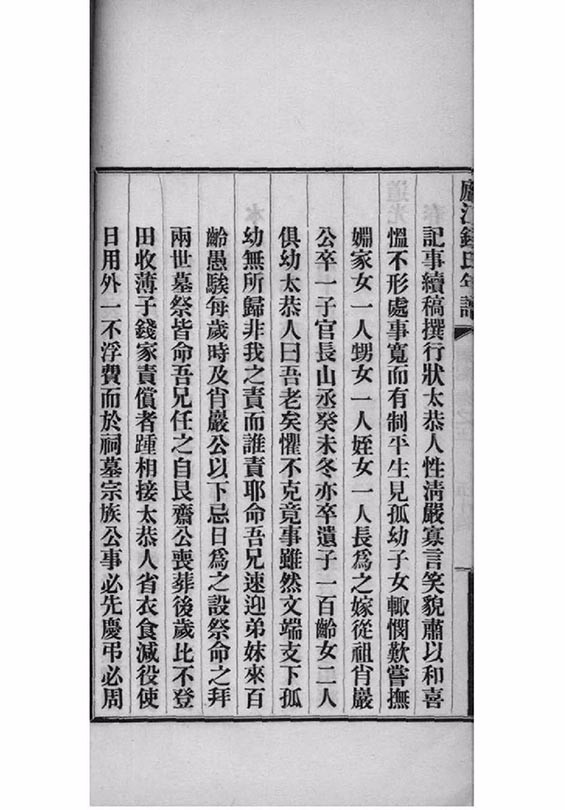 廬江錢氏年譜
記事續稿撰行狀太恭人性淸嚴寡言笑貌肅以和喜
慍不形處事寬而有制平生見孤幼子女輙憫歎嘗撫
婣家女一人甥女一人姪女一人長爲之嫁從祖肖巖
公卒一子官長山丞癸未冬亦卒遺子一百齡女二人
俱幼太恭人曰吾老矣懼不克竟事雖然文端支下孤
幼無所歸非我之責而誰責耶命吾兄速迎弟妹來百
齡愚騃每歲時及肖巖公以下忌日爲之設祭命之拜
兩世墓祭皆命吾兄任之自艮齋公喪葬後歲比不登
田收薄子錢家責償者踵相接太恭人省衣食減役使
日用外一不浮費而於祠墓宗族公事必先慶弔必周